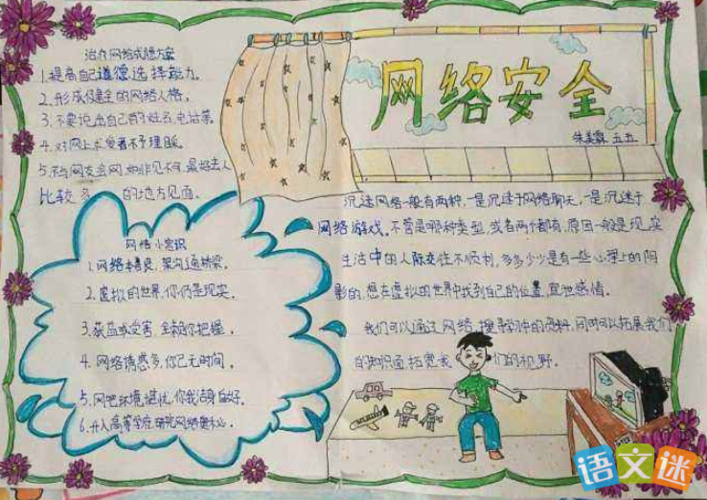 治疗网络成瘾方案
1.提高自己道德选择能力。
2.形成健全的网络人格。
3.不要说出自己的姓名,电话等。
4.对网上求爱者不予理睬。
5.不与网友会网,如非见不可,最好去人
比较多 的地方见面。
网络小常识
1.网络 架沟通桥梁。
2.虚拟的世界,你仍是现实。
3.获益或受害,全靠你把握。
4.网络情感多,你已无时间。
5.网吧环境 你我洁身自好。
6.升入高等学府,研究网络 核心。
网络安全
朱美霖 五五
沉迷网络一般有两种,一是沉迷于网络聊天,一是沉迷于
网络游戏。不管是哪种类型,或者两个都有,原因一般是现实
生活中的人际交往不顺利,多多少少是有一些心理上的阴
影的,想在虚拟的世界中找到自己的位置,宣泄感情。
我们可以通过网络,搜寻学习中的资料,同时可以拓展我们
的知识面,拓宽我们的视野。
语文迷